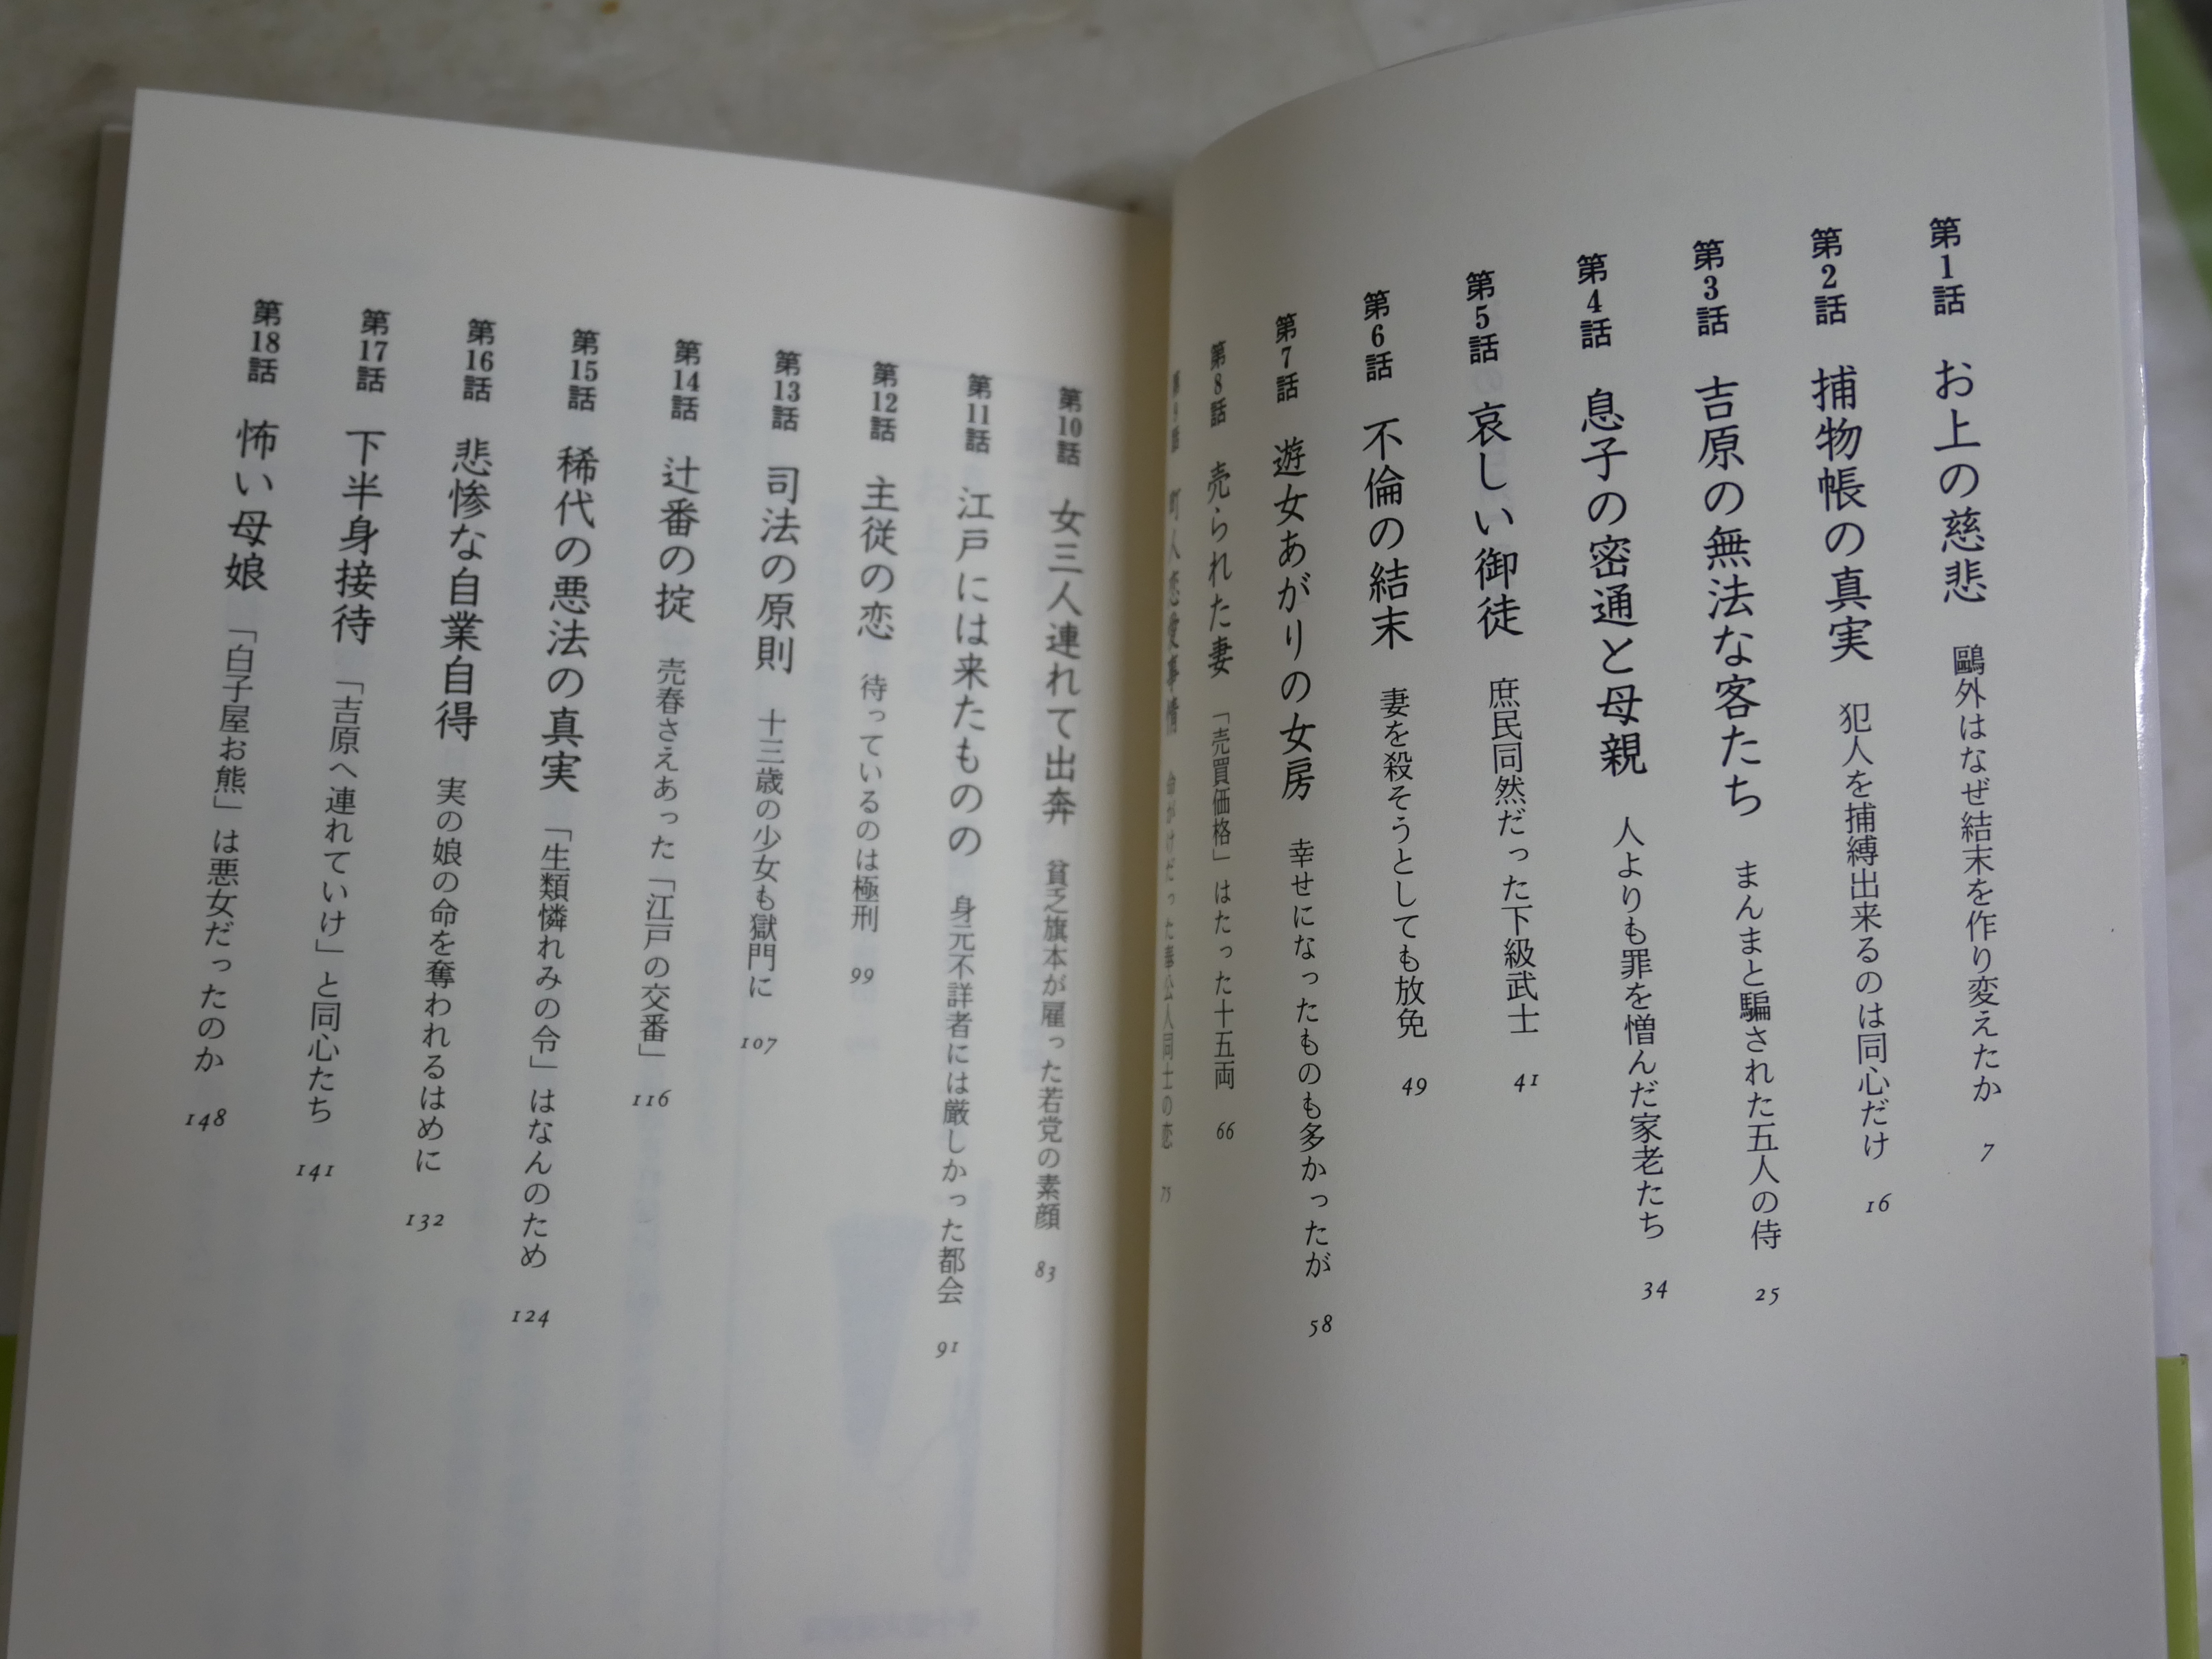 第1話 お上の慈悲 鷗外はなぜ結末を作り変えたか 7
第2話 捕物帳の真実 犯人を捕縛出来るのは同心だけ 16
第3話 吉原の無法な客たち まんまと騙された五人の侍 25
第4話 息子の密通と母親 人よりも罪を憎んだ家老たち 34
第5話 哀しい御徒 庶民同然だった下級武士 41
第6話 不倫の結末 妻を殺そうとしても放免 49
第7話 遊女あがりの女房 幸せになったものも多かったが 58
第8話 売られた妻 「売買価格」はたった十五両 66
第9話 町人恋愛事情 命がけだった奉公人同士の恋 75
第10話 女三人連れて出奔 貧乏旗本が雇った若党の素顔 83
第11話 江戸には来たものの 身元不詳者には厳しかった都会 91
第12話 主従の恋 待っているのは極刑 99
第13話 司法の原則 十三歳の少女も獄門に 107
第14話 辻番の掟 売春さえあった「江戸の交番」 116
第15話 稀代の悪法の真実 「生類憐れみの令」はなんのため 124
第16話 悲惨な自業自得 実の娘の命を奪われるはめに 132
第17話 下半身接待 「吉原へ連れていけ」と同心たち 141
第18話 怖い母娘 「白子屋お熊」は悪女だったのか 148